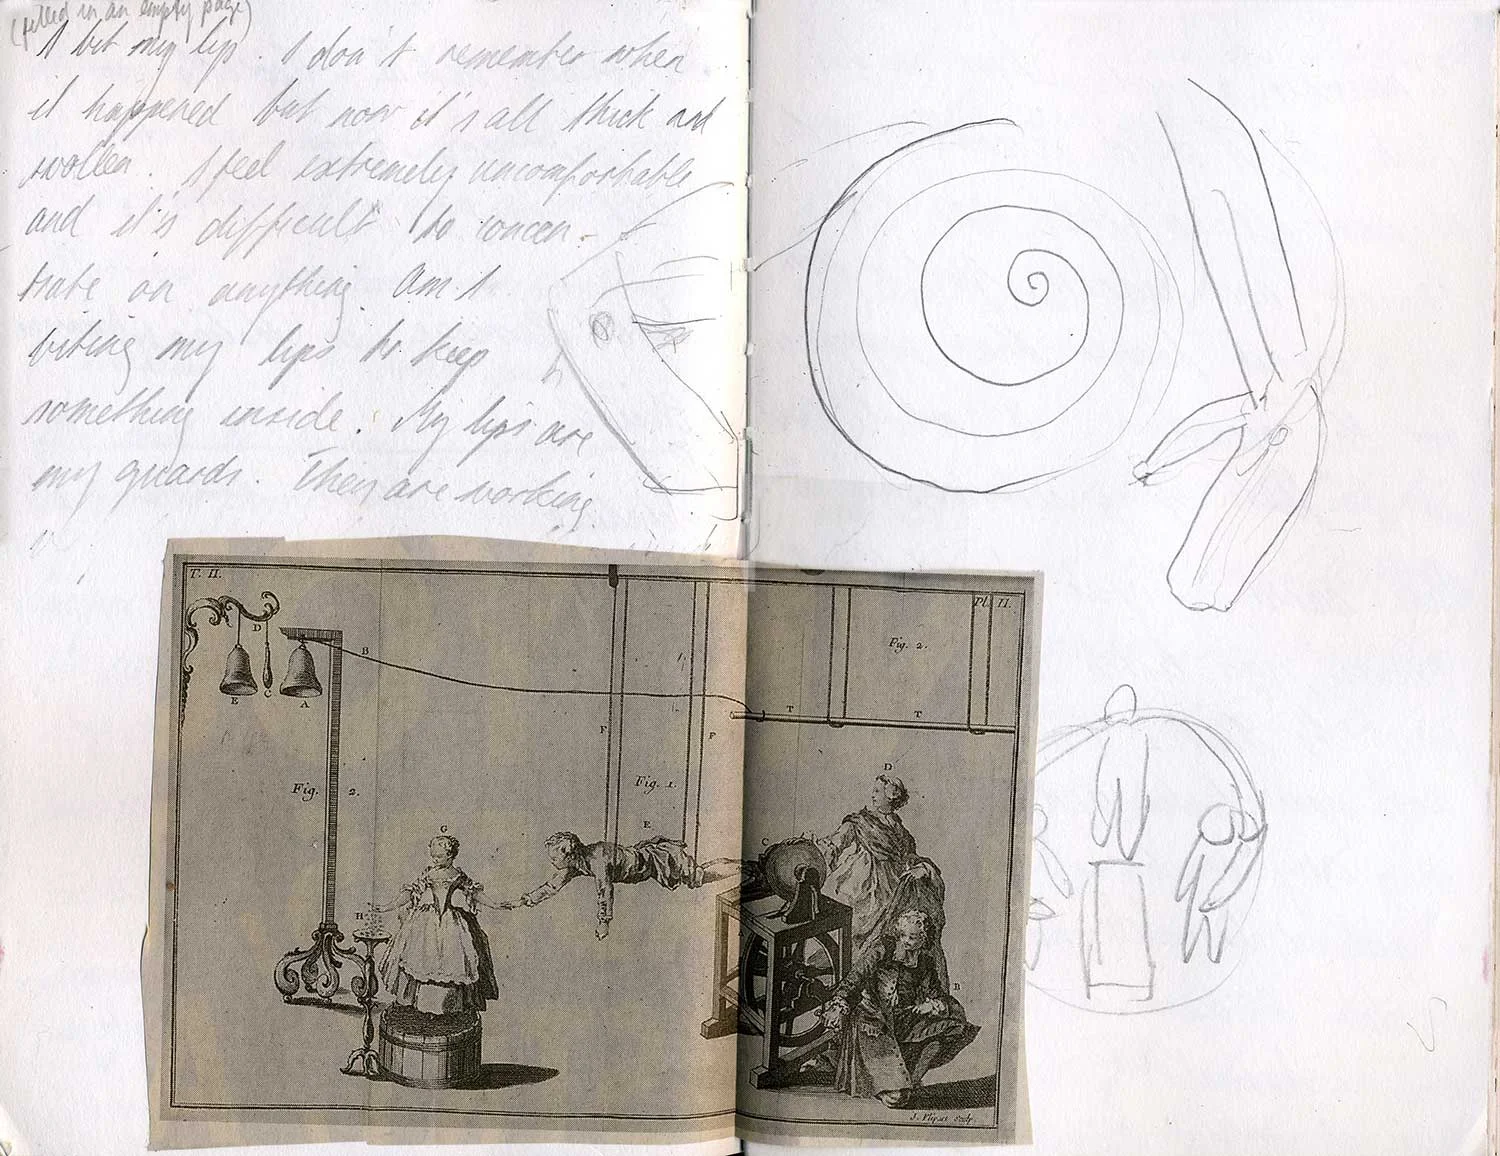 (filled in an empty page)
I bit my lip. I don't remember when
it happened but now it's all thick and
swollen. I feel extremely uncomfortable
and it's difficult to concen-
trate on anything. Am I
biting my lips to keep
something inside. My lips are
my guards. They are working
T. II.
Pl. II.
D
E
C
A
B
Fig. 2.
T
T
F
F
Fig. 2.
Fig. 1.
D
G
E
C
H
B